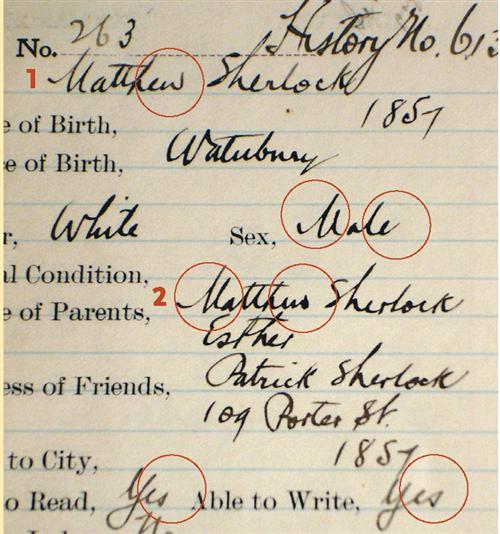 No. 263 History No. 613
1 Matthew Sherlock
e of Birth, 1857
e of Birth, Waterbury
r, White Sex, Male
al Condition,
e of Parents, 2 Matthew Sherlock
Esther
ess of Friends, Patrick Sherlock
109 Porter St.
to City, 1857
o Read, Yes Able to Write, Yes